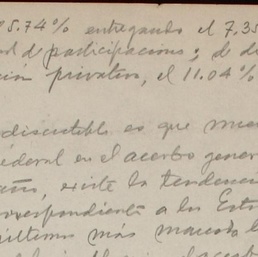 5.74% entregando el 7.35
d participaciones; de d
ción privativa, el 11.04%
discutible es que mien
Federal en el acerbo gener
existe la tendenci
orrespondiente a los Est
último más marcada l